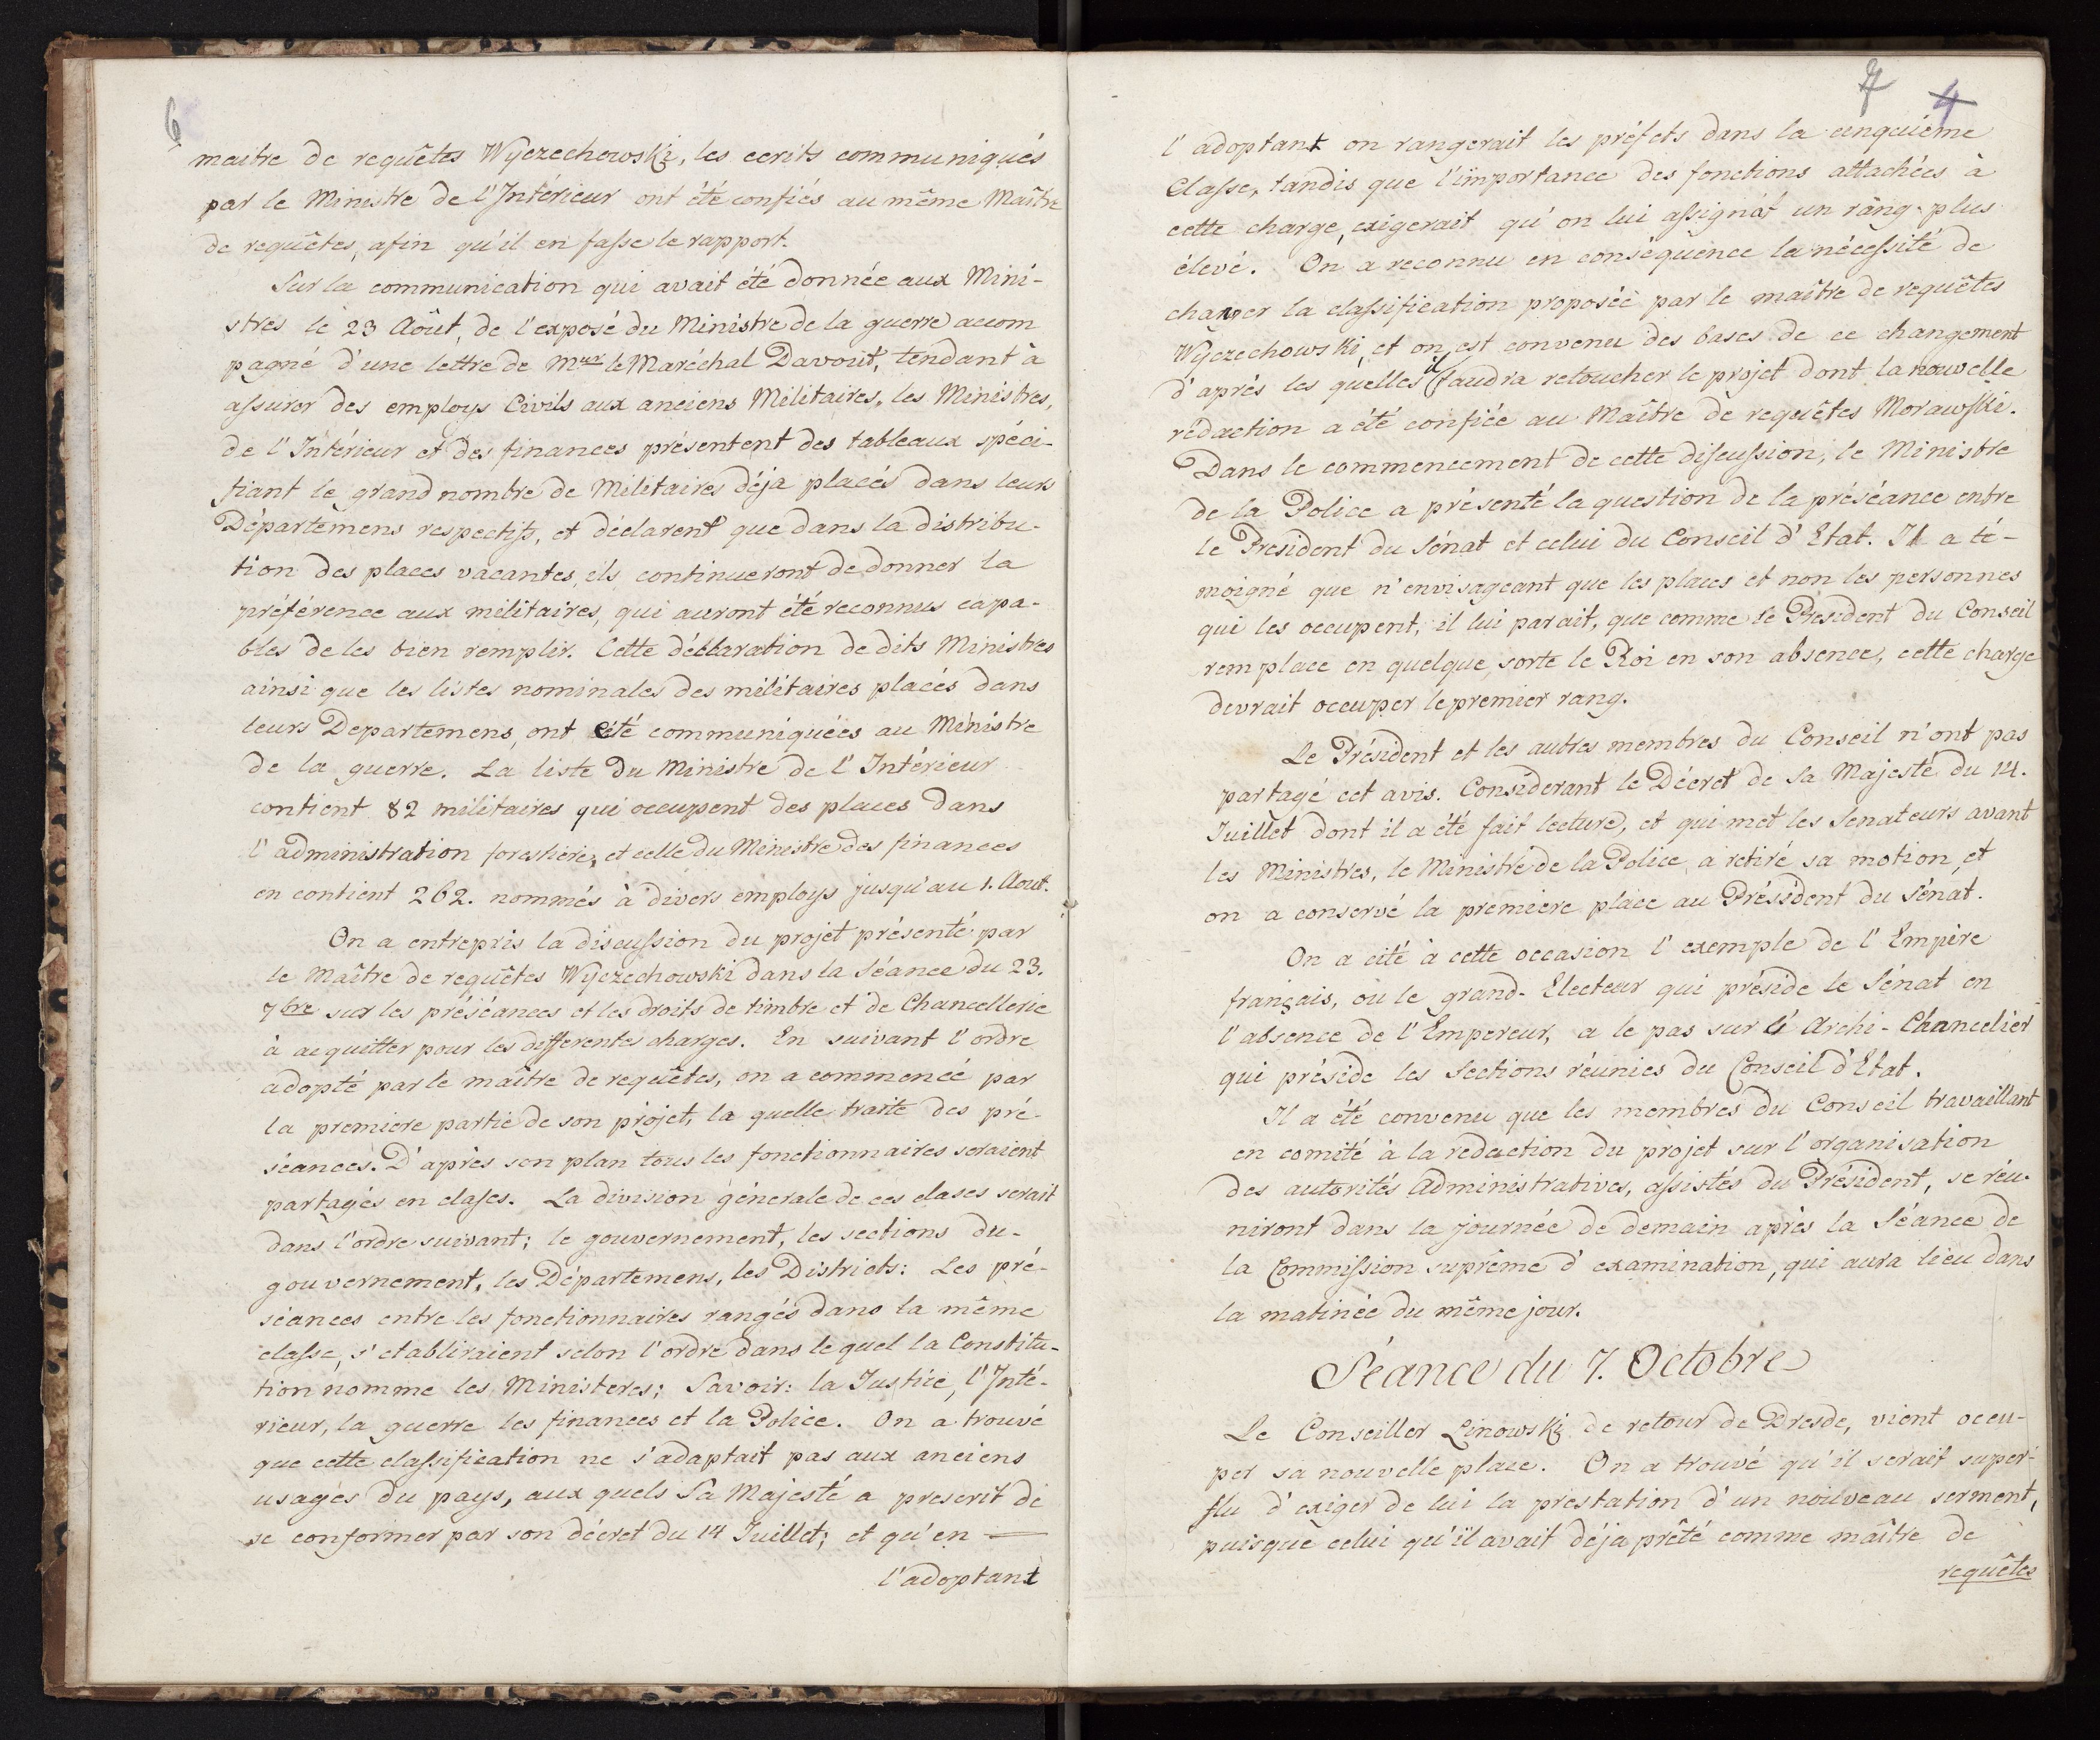 6
maitre de requêtes Wyczechowski, les ecrits communiqués
par le Ministre de l'Intérieur ont été confiés au même Maître
de requêtes, afin qu'il en fasse le rapport.
Sur la communication qui avait été donnée aux Mini-
stres le 23 Août, de l'exposé du Ministre de la guerre accom
pagné d'une lettre de le Maréchal Davout, tendant à
assurer des employs Civils aux anciens Militaires, les Ministres,
de l'Intérieur et des finances présentent des tableaux spéci-
fiant le grand nombre de Militaires déja placés dans leurs
Départemens respectifs, et déclarent que dans la distribu-
tion des places vacantes, ils continueront de donner la
préférence aux militaires, qui auront été reconnus capa-
bles de les bien remplir. Cette déclaration de dits Ministres
ainsi que les listes nominales des militaires placés dans
leurs Departemens, ont été communiquées au Ministre
de la guerre. La liste du Ministre de l'Intérieur
contient 82 militaires qui occupent des places dans
l'administration forestiere, et celle du Ministre des finances
en contient 262. nommés à divers employs jusqu'au 1. Aout.
On a entrepris la discussion du projet présenté par
le Maître de requêtes Wyczechowski dans la Séance du 23.
7bre sur les préséances et les droits de timbre et de Chancellerie
à acquitter pour les differentes charges. En suivant l'ordre
adopté par le maître de requêtes, on a commencé par
la premiere partie de son projet, la quelle traite des pré-
séances. D'après son plan tous les fonctionnaires seraient
partagés en classes. La division génerale de ces clases serait
dans l'ordre suivant; le gouvernement, les sections du-
gouvernement, les Départemens, les Districts: Les pré-
séances entre les fonctionnaires rangés dans la même
classe, s'etabliraient selon l'ordre dans le quel la Constitu-
tion nomme les Ministeres; Savoir: la Justice, l'Inté-
rieur, la guerre les finances et la Police. On a trouvé
que cette classification ne s'adaptait pas aux anciens
usages du pays, aux quels Sa Majesté a prescrit de
se conformer par son décret du 14 Juillet; et qu'en —
l'adoptant
7 4
l'adoptant on rangerait les préfets dans la cinquième
Classe, tandis que l'importance des fonctions attachées à
cette charge, exigerait qu'on lui assignât un râng plus
élevé. On a reconnu en conséquence la nécessité de
changer la classification proposée par le maître de requêtes
Wyczechowski, et on est convenu des bases de ce changement
d'après les quelles il faudra retoucher le projet dont la nouvelle
rédaction a été confiée au Maître de requêtes Morawski.
Dans le commencement de cette discussion, le Ministre
de la Police a présenté la question de la préséance entre
le President du Sénat et celui du Conseil d'Etat. Il a té-
moigné que n'envisageant que les places et non les personnes
qui les occupent, il lui parait, que comme le President du Conseil
remplace en quelque sorte le Roi en son absence, cette charge
devrait occuper le premier rang.
Le Président et les autres membres du Conseil n'ont pas
partagé cet avis. Considerant le Décret de Sa Majesté du 14.
Juillet dont il a été fait lecture, et qui met les Senateurs avant
les Ministres, le Ministre de la Police a retiré sa motion, et
on a conservé la premiere place au Président du Sénat.
On a cité à cette occasion l'exemple de l'Empire
français, ou le grand-Electeur qui préside le Sénat en
l'absence de l'Empereur, a le pas sur l'Archi-Chancelier
qui préside les Sections réunies du Conseil d'Etat.
Il a été convenu que les membres du Conseil travaillant
en comité à la redaction du projet sur l'organisation
des autorités Administratives, assistés du Président, se réu-
niront dans la journée de demain après la Séance de
la Commission suprême d'examination, qui aura lieu dans
la matinée du même jour.
Séance du 7. Octobre
Le Conseiller Linowski de retour de Dresde, vient occu-
per sa nouvelle place. On a trouvé qu'il serait super-
flu d'exiger de lui la prestation d'un nouveau serment,
puisque celui qu'il avait déja prêté comme maître de
requêtes